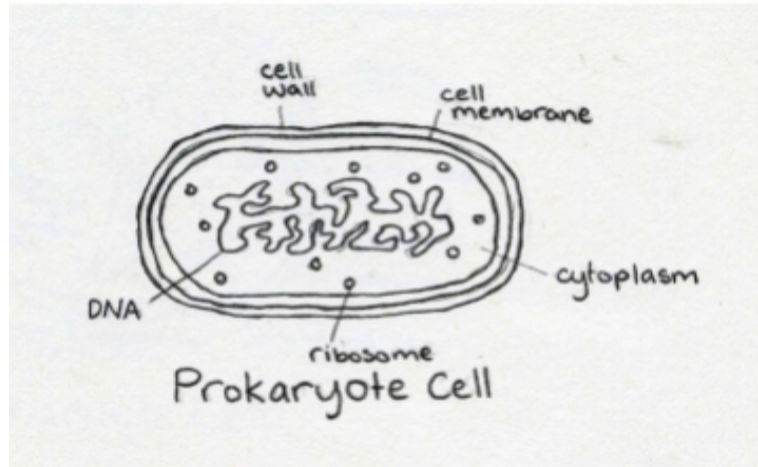 cell
wall
cell
membrane
cytoplasm
DNA
ribosome
Prokaryote Cell